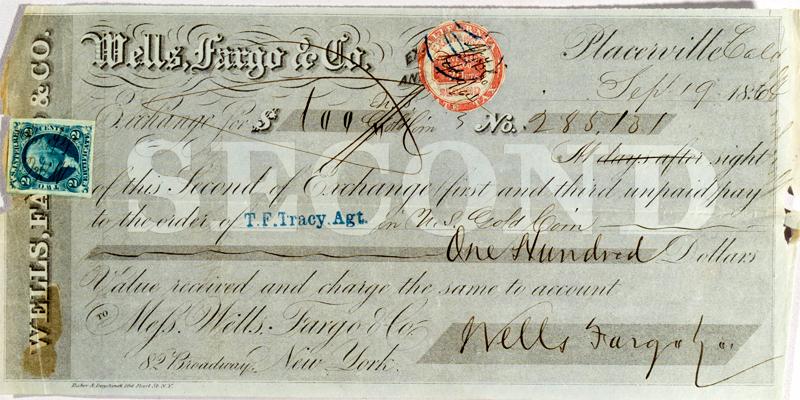 Wells, Fargo & Co.
Placerville Cala
Sep 19 186
Exchange for $ 100 Gold Coin No. 285,131
At days after sight
of this Second of Exchange first and third unpaid, pay
to the order of T.F. Tracy, Agt. in U.S. Gold Coin
One Hundred Dollars
Value received and charge the same to account
TO Mess. Wells. Fargo & Co.
82 Broadway, New York.
Wells Fargo & Co.
SECOND
WELLS, FA & CO.
2 CENTS 2